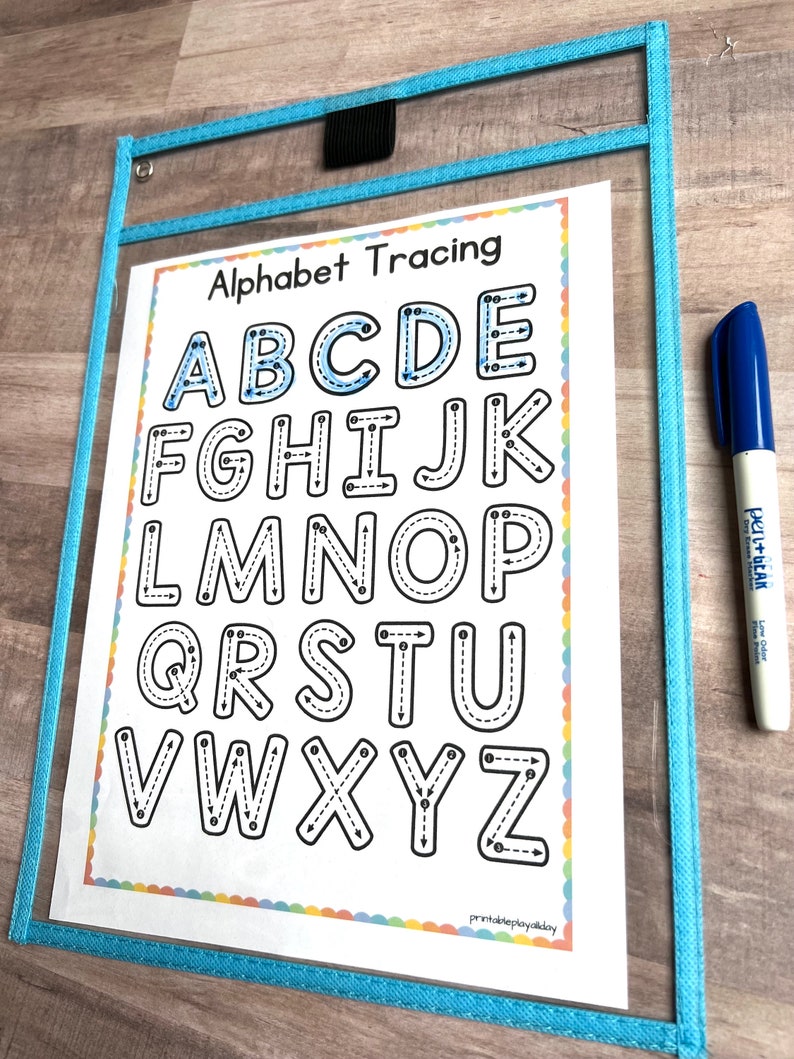 Alphabet Tracing
ABCDE
FGHIJK
LMNOP
QRSTU
VWXYZ
printableplayallday
pen+GEAR
Dry Erase Marker
Low Odor
Fine Point